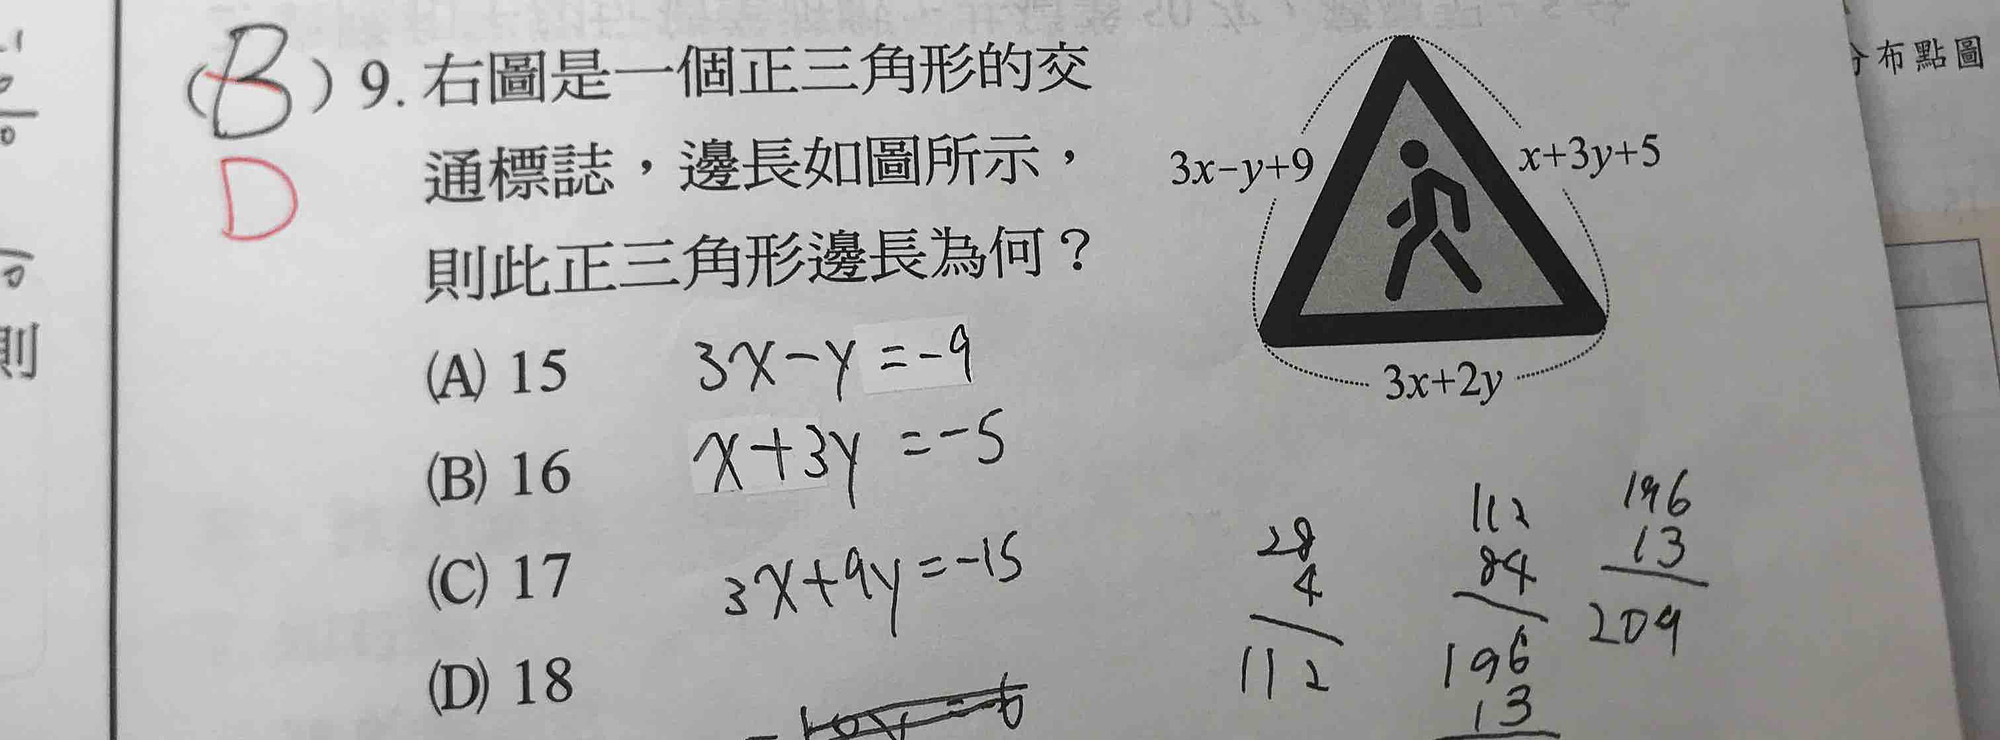 (B) 9. 右圖是一個正三角形的交
D
通標誌，邊長如圖所示，
則此正三角形邊長為何？
(A) 15
(B) 16
(C) 17
(D) 18
3x-y+9
x+3y+5
3x+2y
3x-y=-9
x+3y=-5
3x+9y=-15
28
4
112
112
84
196
13
196
13
209
布點圖
則